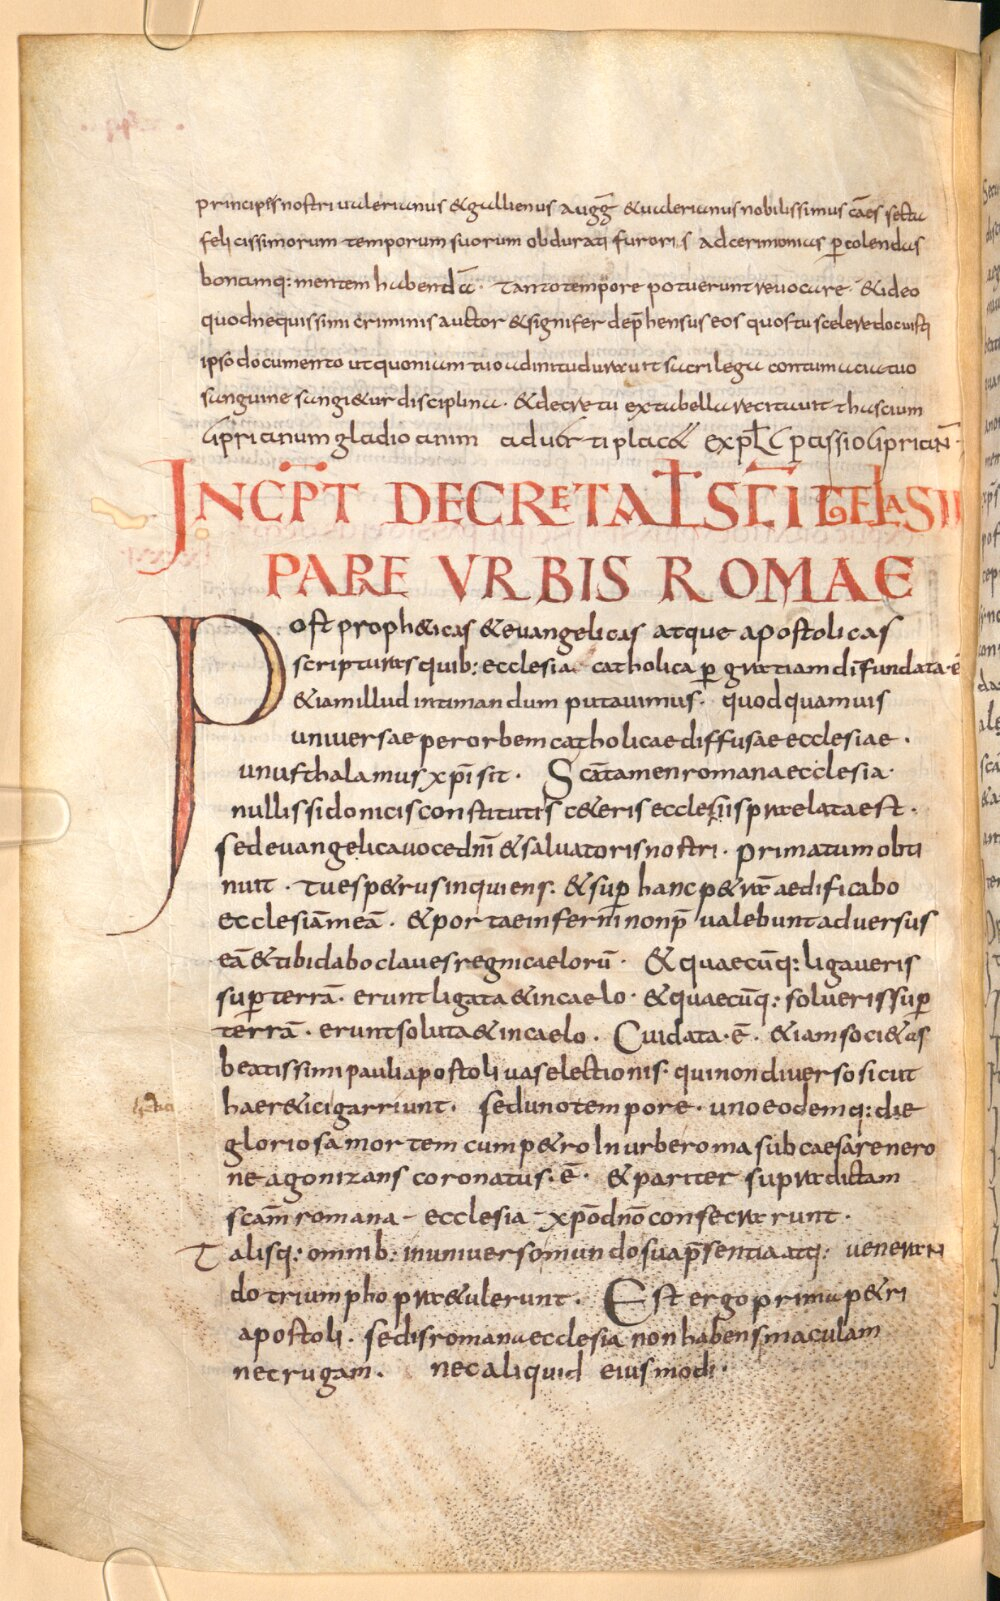 principis nostri ualerianus & gallienus augg̅ & ualerianus nobilissimus cae̅s secta
felicissimorum temporum suorum obdurati furoris ad cerimonias p̲ colendas
bonamq: mentem habenda̅ · Tanto tempore potuerunt reuocare · & ideo
quod nequissimi criminis auctor & signifer dep̅hensus eos quos tu scelere docuisti
ipso documento ut quoniam tuo adinitu durauit sacrilega contumacia tuo
sanguine sangi&ur disciplina · & decreta ex tabella recitauit thascium
Ciprianum gladio anim aduerti plac& expl̅ passio Ciprian̅
INC̅P̅T DECRETAL̅ SC̅I GELASII
PAPE VRBIS ROMAE
Post proph&icas & euangelicas atque apostolicas
scripturas quib: ecclesia catholica p̲ gratiam di̅ fundata · e̅
&iam illud intimandum putauimus · quod quamuis
uniuersae per orbem catholicae diffusae ecclesiae ·
unus thalamus xp̅i sit · Sc̅a tamen romana ecclesia ·
nullis sidonicis constitutis c&eris ecclesiis praelata est ·
sed euangelica uoce dn̅i & saluatoris nostri · primatum obti
nuit · Tu es p&rus inquiens · & sup̲ hanc p&ra aedificabo
ecclesia̅ mea̅ · & portae inferni non p̅ualebunt aduersus
ea̅ & tibi dabo claues regni caeloru̅ · & quaecu̅q: ligaueris
sup̲ terra̅ · erunt ligata & in caelo · & quaecu̅q: solueris sup̲
terra̅ · erunt soluta & in caelo · Cui data · e̅ · &iam soci&as
beatissimi pauli apostoli uas electionis · qui non diuerso sicut
haer&ici garriunt · sed uno tempore · uno eodemq: die
gloriosa mortem cum p&ro In urbe roma sub caesare nero
ne agonizans coronatus · e̅ · & pariter supradictam
sca̅m romana- ecclesia- xp̅o dn̅o consecrarunt ·
Talisq: omnib: in uniuerso mundo sua p̅sentia atq: ueneran
do triumpho pra&ulerunt · Est ergo prima p&ri
apostoli · sedis romana ecclesia non habens maculam
nec rugam · nec aliquid eiusmodi ·